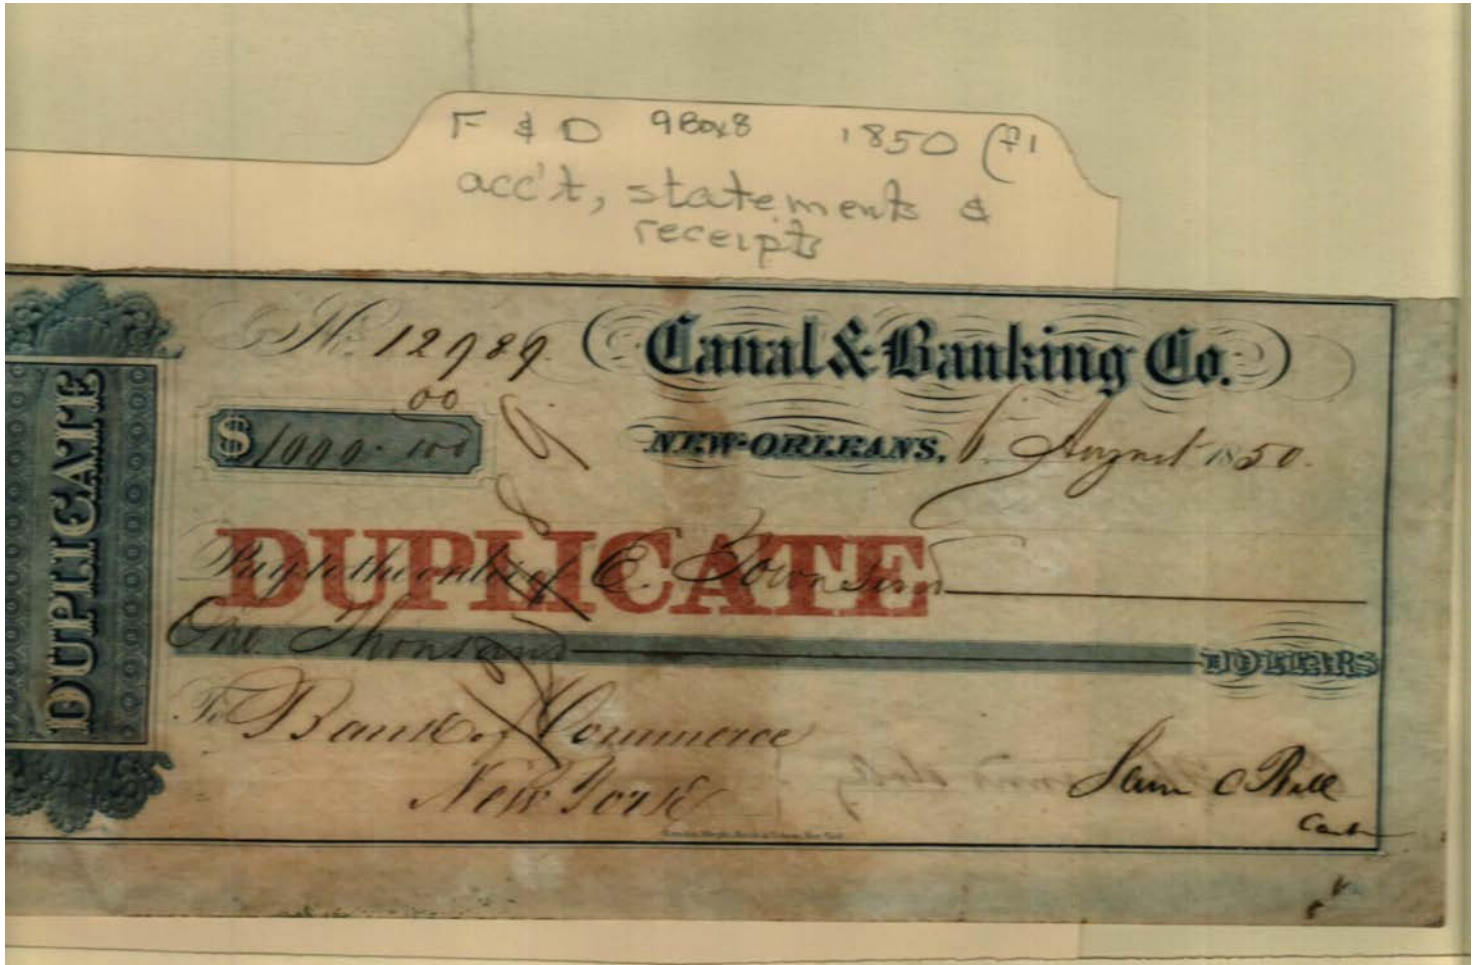 F & D 9Box8 1850 (f1
acc't, statements &
receipts
DUPLICATE
No. 12989. Canal & Banking Co.
$1000. 00/100
NEW-ORLEANS, 6 August 1850.
DUPLICATE
Pay to the order of E. Townsend
One Thousand DOLLARS
To Bank of Commerce
New York
Sam C Bell
Cash